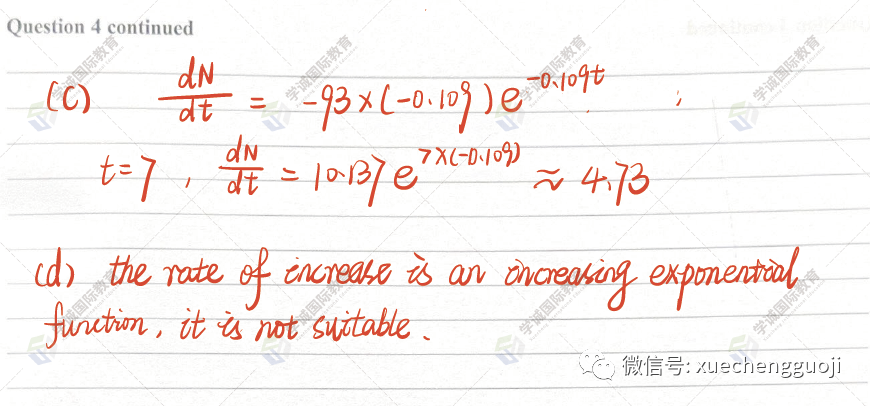 Question 4 continued
(C) dN/dt = -93×(-0.109)e^-0.109t ;
t=7, dN/dt = 10.137e^7×(-0.109) ≈ 4.73
(d) the rate of increase is an increasing exponential
function, it is not suitable.
微信号: xuechengguoji
学诚国际教育